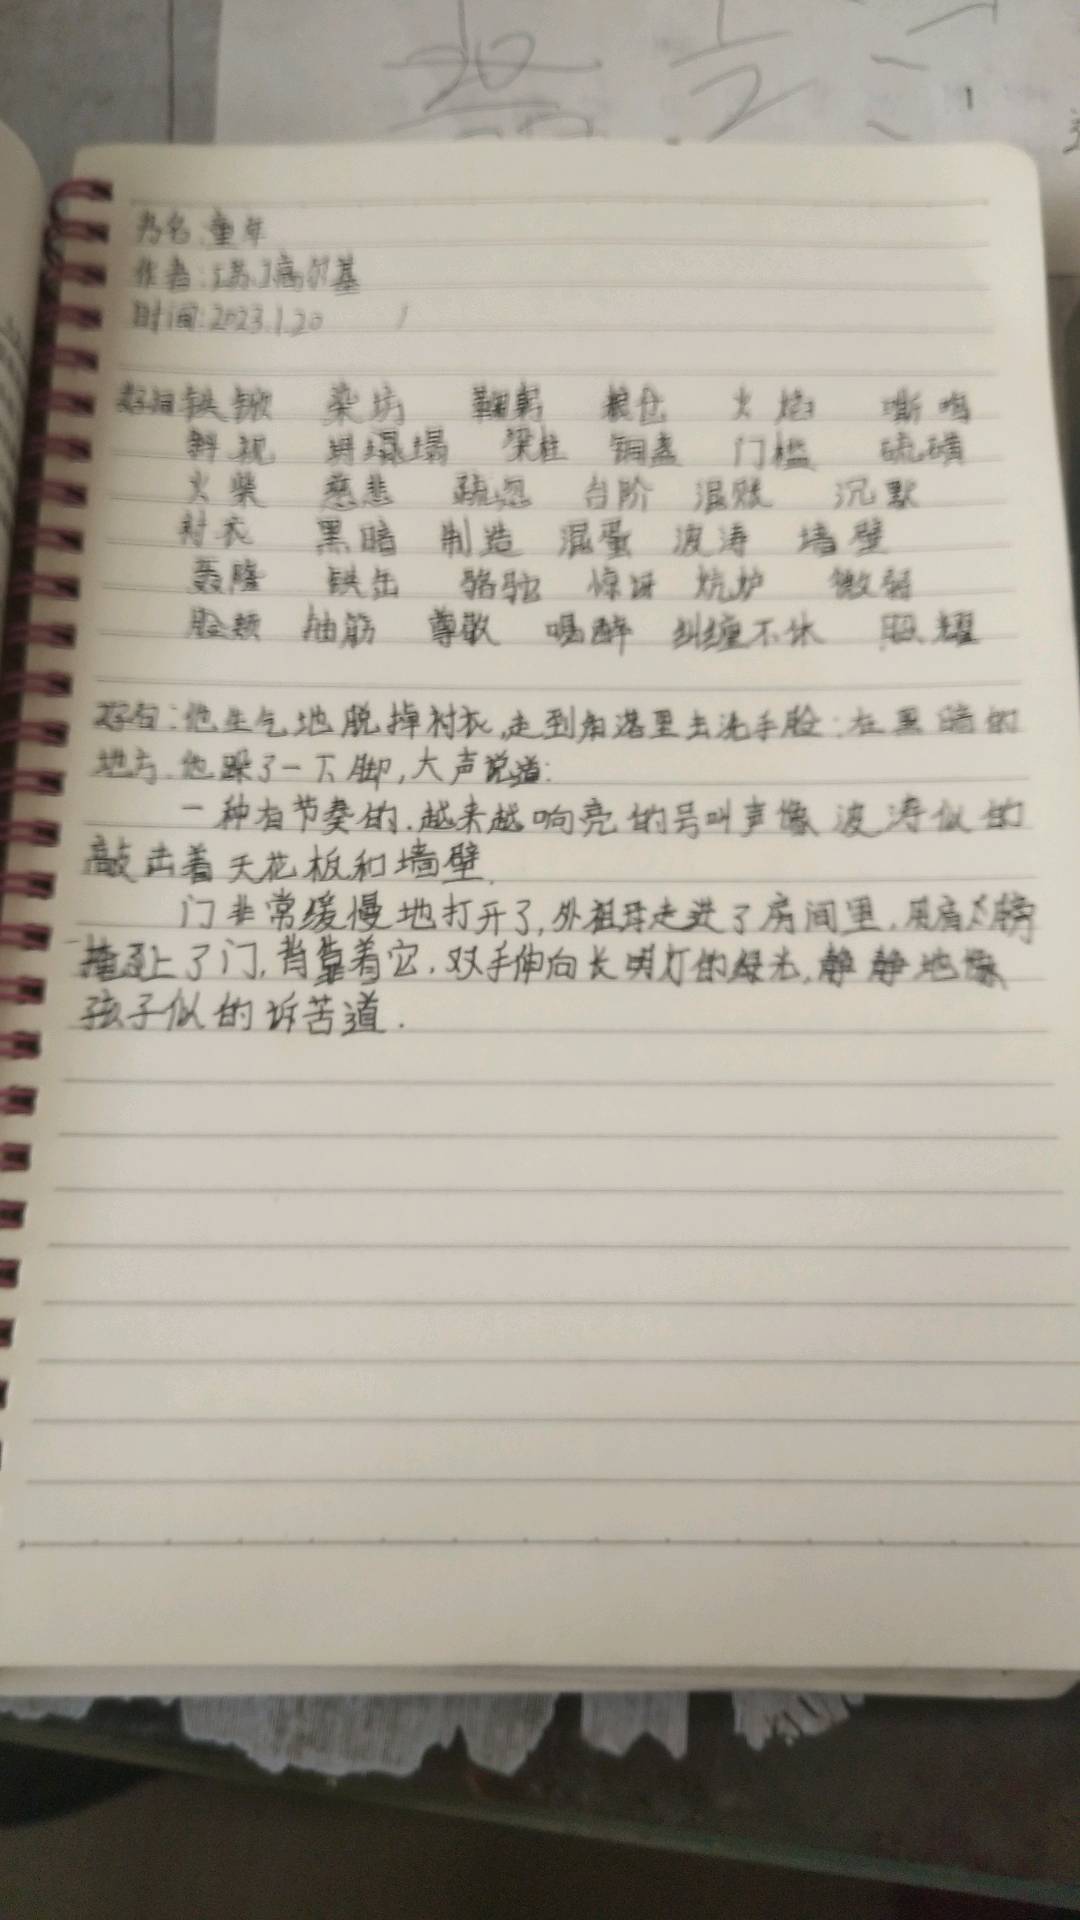 20
1
2
1
书名:童年
作者:[苏]高尔基
时间:2023.1.20
好词 铁锨 染坊 鞠躬 粮仓 火焰 嘶鸣
斜视 坍塌 梁柱 铜盏 门槛 硫磺
火柴 慈悲 疏忽 台阶 混账 沉默
衬衣 黑暗 制造 混蛋 波涛 墙壁
轰隆 铁缶 骆驼 惊讶 炕炉 微弱
脸颊 抽筋 尊敬 喝醉 纠缠不休 照耀
好句:他生气地脱掉衬衣,走到角落里去洗手脸:在黑暗的
地方.他跺了一下脚,大声说道:
一种有节奏的.越来越响亮的号叫声像波涛似的
敲击着天花板和墙壁.
门非常缓慢地打开了,外祖母走进了房间里,用肩膀
掩上了门,背靠着它.双手伸向长明灯的绿光,静静地像
孩子似的诉苦道.